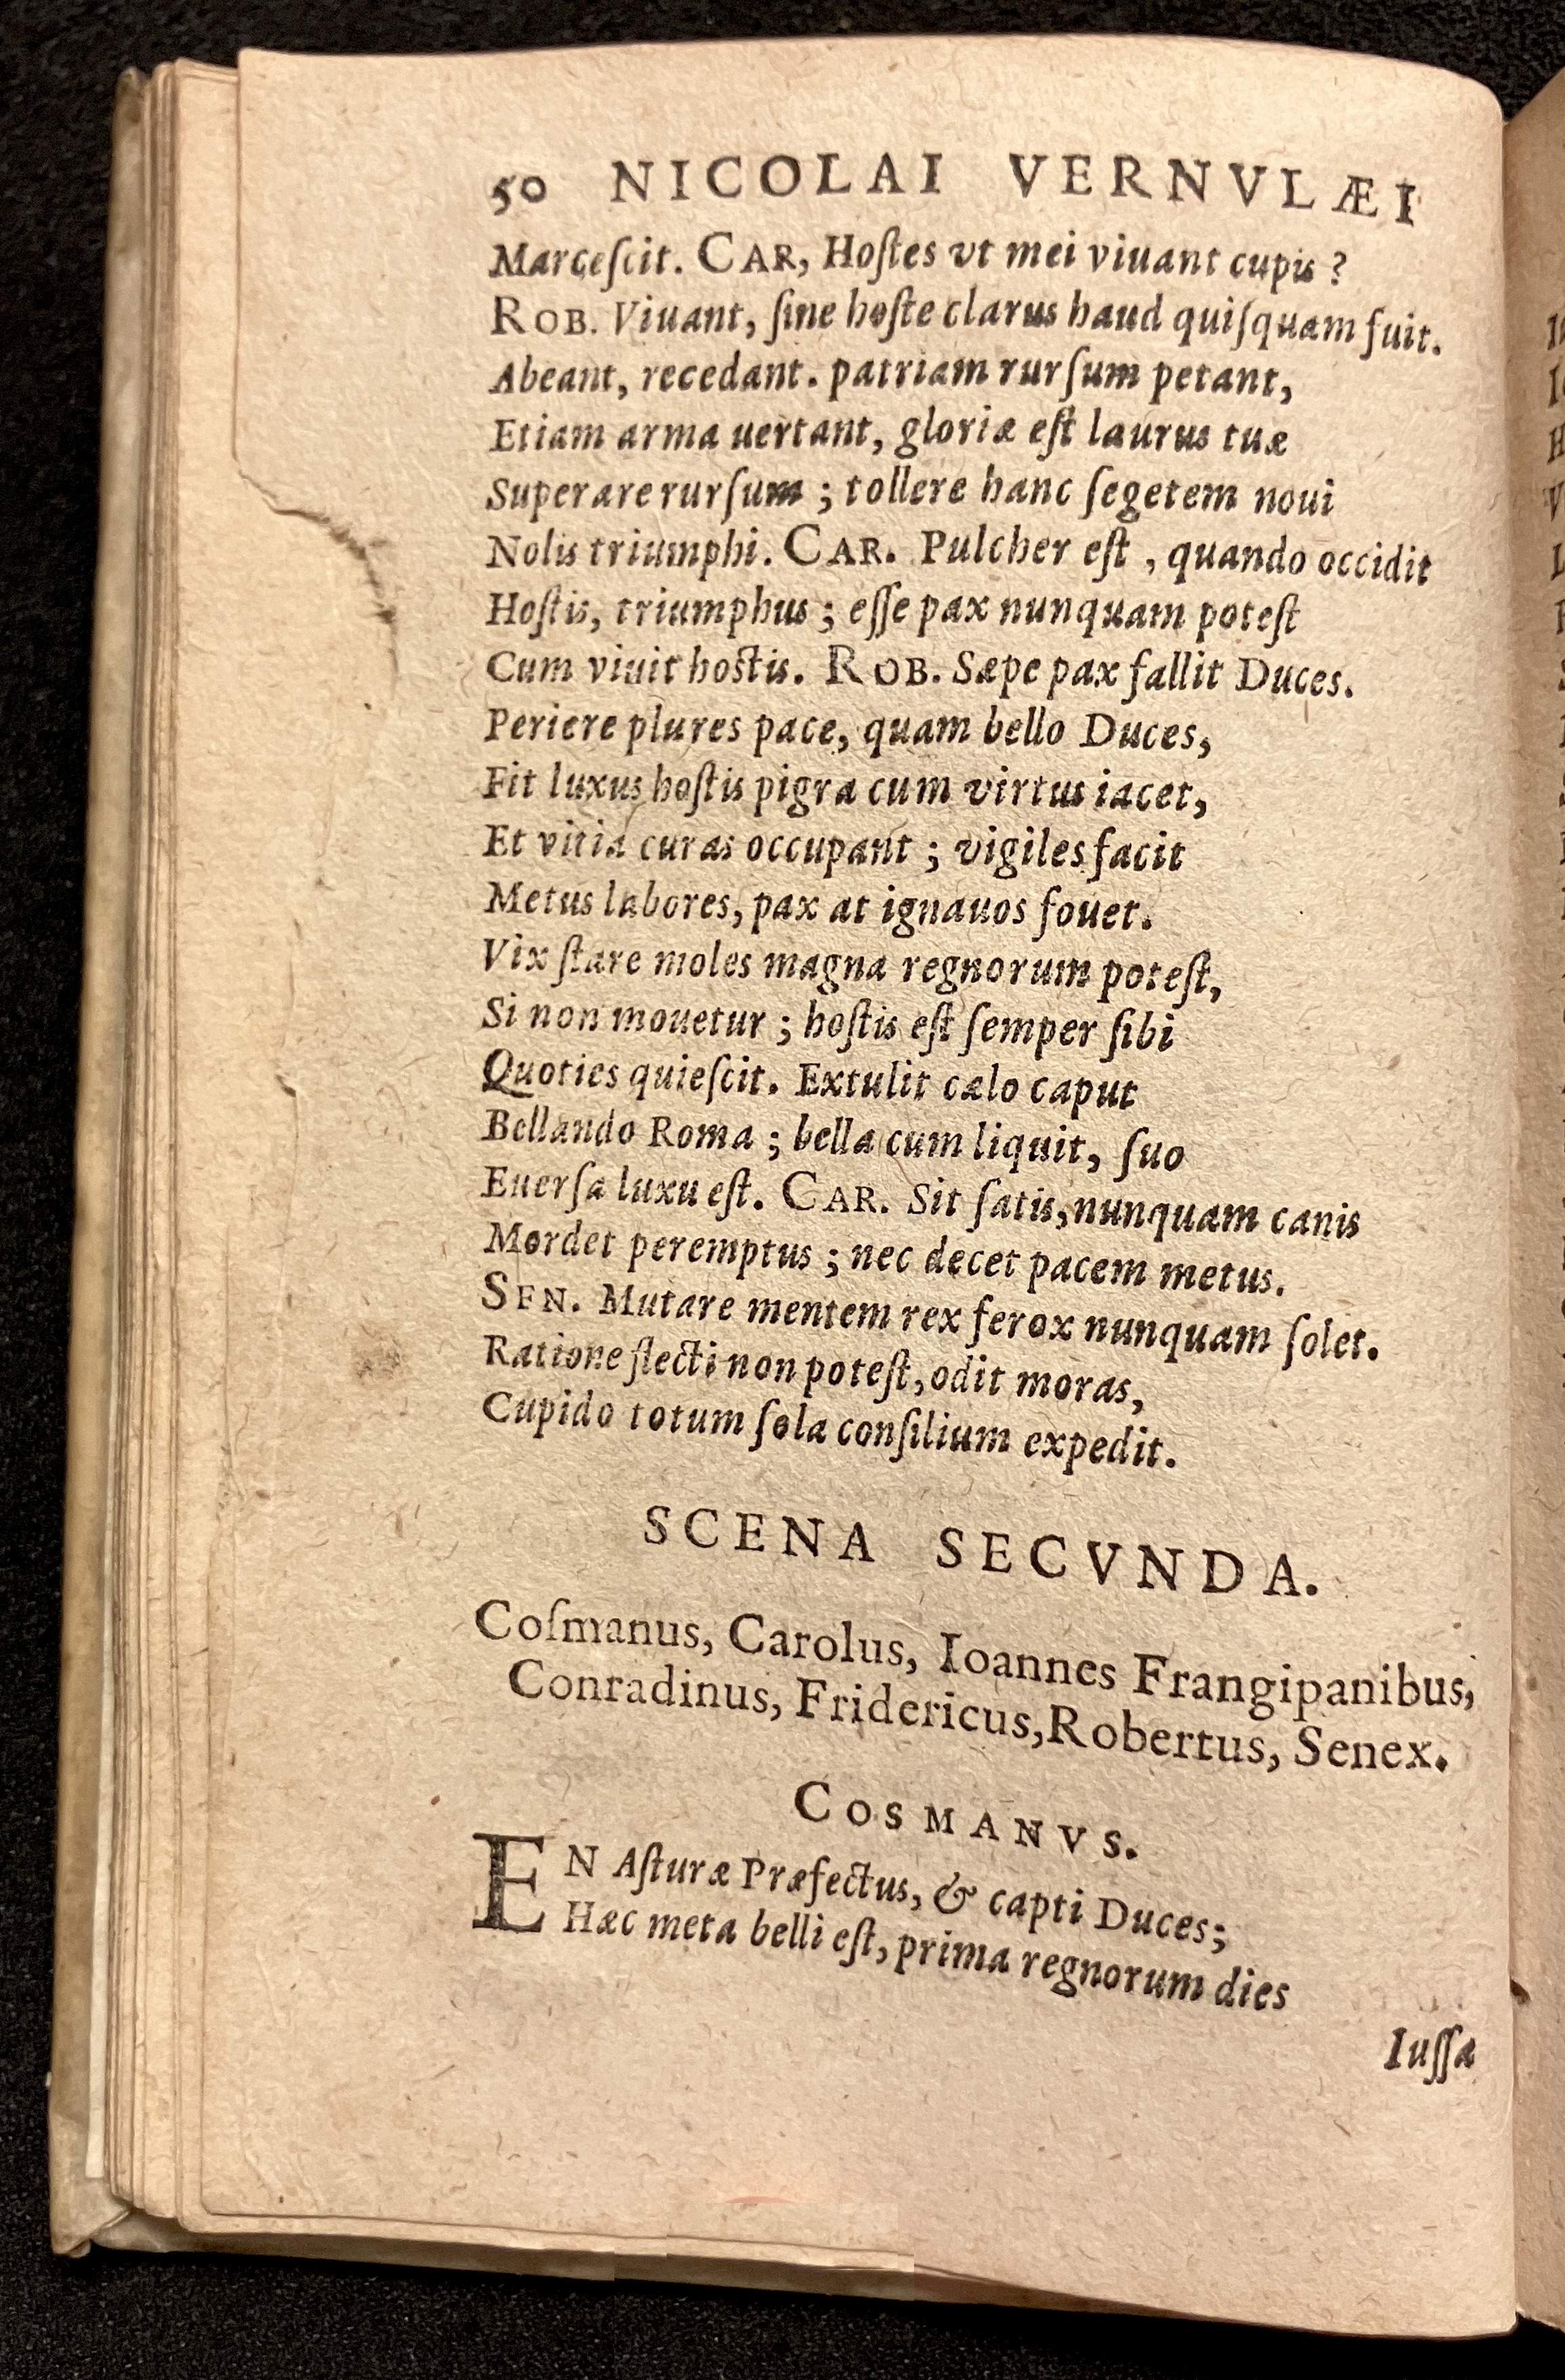 50 NICOLAI VERNVLÆI
Marceſcit. CAR, Hoſtes vt mei viuant cupis ?
ROB. Viuant, ſine hoſte clarus haud quiſquam fuit.
Abeant, recedant. patriam rurſum petant,
Etiam arma uertant, gloriæ eſt laurus tuæ
Superare rurſum ; tollere hanc ſegetem noui
Nolis triumphi. CAR. Pulcher eſt , quando occidit
Hoſtis, triumphus ; eſſe pax nunquam poteſt
Cum viuit hoſtis. ROB. Sæpe pax fallit Duces.
Periere plures pace, quam bello Duces,
Fit luxus hoſtis pigra cum virtus iacet,
Et vitia curas occupant ; vigiles facit
Metus labores, pax at ignauos fouet.
Vix ſtare moles magna regnorum poteſt,
Si non mouetur ; hoſtis eſt ſemper ſibi
Quoties quieſcit. Extulit cælo caput
Bellando Roma ; bella cum liquit, ſuo
Euerſa luxu eſt. CAR. Sit ſatis, nunquam canis
Mordet peremptus ; nec decet pacem metus.
SEN. Mutare mentem rex ferox nunquam ſolet.
Ratione flecti non poteſt, odit moras,
Cupido totum ſola conſilium expedit.
SCENA SECVNDA.
Coſmanus, Carolus, Ioannes Frangipanibus,
Conradinus, Fridericus, Robertus, Senex.
COSMANVS.
EN Aſturæ Præfectus, & capti Duces;
Hæc meta belli eſt, prima regnorum dies
Iuſſa